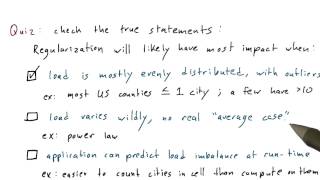 Quiz: check the true statements:
Regularization will likely have most impact when:
load is mostly evenly distributed, with outliers
ex: most US counties ≤ 1 city; a few have >10
load varies wildly, no real "average case"
ex: power law
application can predict load imbalance at run-time
ex: easier to count cities in cell than compute on them